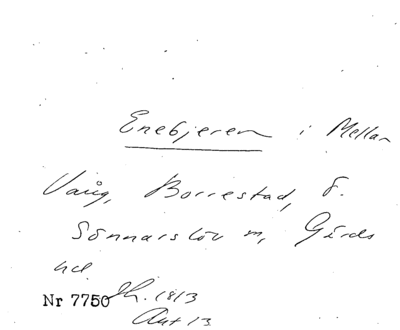 Enebjeren i Mellan
Vång, Borrestad, Ö.
Sönnarslöv m, Gärds
hd.
Nr 7750 Sk. 1813
Akt 13